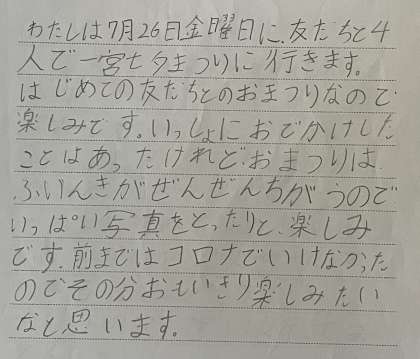 わたしは7月26日金曜日に、友だちと4
人で一宮七夕まつりに行きます。
はじめての友だちとのおまつりなので
楽しみです。いっしょにおでかけした
ことはあったけれどおまつりは
ふいんきがぜんぜんちがうので
いっぱい写真をとったりと、楽しみ
です。前まではコロナでいけなかった
のでその分おもいきり楽しみたい
なと思います。